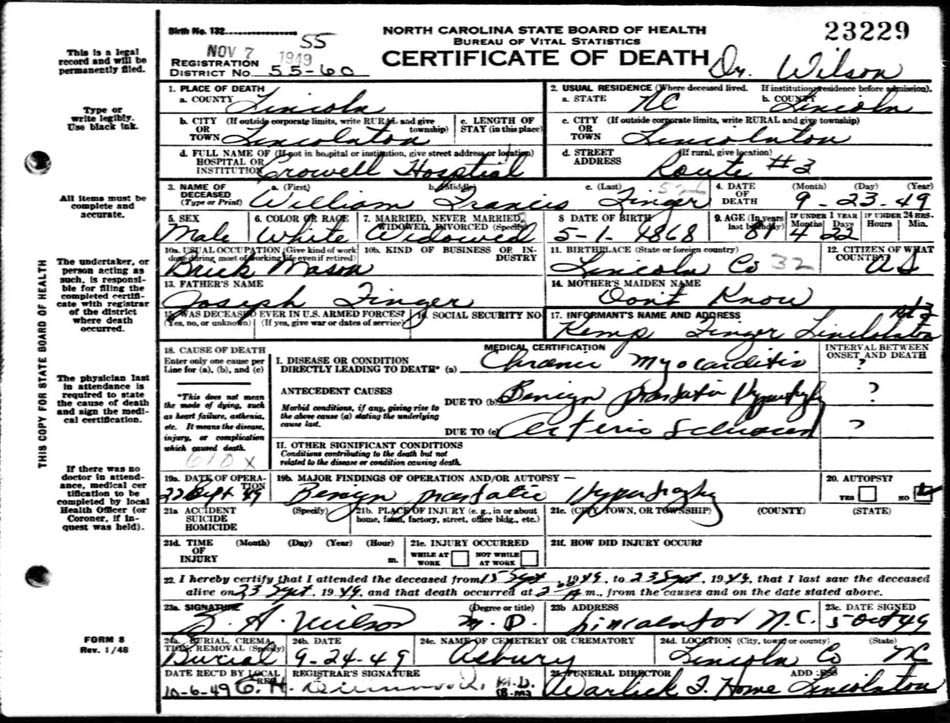 Birth No. 132 55
NORTH CAROLINA STATE BOARD OF HEALTH
BUREAU OF VITAL STATISTICS
23229
NOV 7 1949
REGISTRATION DISTRICT NO. 55-60
CERTIFICATE OF DEATH
Dr. Wilson
This is a legal record and will be permanently filed.
Type or write legibly. Use black ink.
All items must be complete and accurate.
The undertaker, or person acting as such, is responsible for filing the completed certificate with registrar of the district where death occurred.
The physician last in attendance is required to state the cause of death and sign the medical certification.
If there was no doctor in attendance, medical certification to be completed by local Health Officer (or Coroner, if inquest was held).
THIS COPY FOR STATE BOARD OF HEALTH
FORM 8
Rev. 1/48
1. PLACE OF DEATH
a. COUNTY Lincoln
2. USUAL RESIDENCE (Where deceased lived. If institution: residence before admission).
a. STATE NC b. COUNTY Lincoln
b. CITY OR TOWN (If outside corporate limits, write RURAL and give township) Lincolnton
c. LENGTH OF STAY (in this place)
c. CITY OR TOWN (If outside corporate limits, write RURAL and give township) Lincolnton
d. FULL NAME OF HOSPITAL OR INSTITUTION (If not in hospital or institution, give street address or location) Crowell Hospital
d. STREET ADDRESS (If rural, give location) Route #3
3. NAME OF DECEASED (Type or Print) a. (First) William b. (Middle) Francis c. (Last) Finger
4. DATE OF DEATH (Month) (Day) (Year) 9-23-49
5. SEX Male
6. COLOR OR RACE White
7. MARRIED, NEVER MARRIED, WIDOWED, DIVORCED (Specify) Widowed
8. DATE OF BIRTH 5-1-1868
9. AGE (In years last birthday) 81 IF UNDER 1 YEAR Months 4 Days 22 IF UNDER 24 HRS. Hours Min.
10a. USUAL OCCUPATION (Give kind of work done during most of working life, even if retired) Brick Mason
10b. KIND OF BUSINESS OR INDUSTRY
11. BIRTHPLACE (State or foreign country) Lincoln Co 32
12. CITIZEN OF WHAT COUNTRY? US
13. FATHER'S NAME Joseph Finger
14. MOTHER'S MAIDEN NAME Don't Know
15. WAS DECEASED EVER IN U.S. ARMED FORCES? (Yes, no, or unknown) (If yes, give war or dates of service)
16. SOCIAL SECURITY NO.
17. INFORMANT'S NAME AND ADDRESS Kemp Finger Lincolnton
18. CAUSE OF DEATH
Enter only one cause per Line for (a), (b), and (c)
*This does not mean the mode of dying, such as heart failure, asthenia, etc. It means the disease, injury, or complication which caused death.
610 X
MEDICAL CERTIFICATION
INTERVAL BETWEEN ONSET AND DEATH
I. DISEASE OR CONDITION DIRECTLY LEADING TO DEATH* (a) Chronic Myocarditis ?
ANTECEDENT CAUSES
Morbid conditions, if any, giving rise to the above cause (a) stating the underlying cause last.
DUE TO (b) Benign Prostatic Hypertrophy ?
DUE TO (c) Arterio ?
II. OTHER SIGNIFICANT CONDITIONS
Conditions contributing to the death but not related to the disease or condition causing death.
19a. DATE OF OPERATION 22 Sept 49
19b. MAJOR FINDINGS OF OPERATION AND/OR AUTOPSY Benign Prostatic Hypertrophy
20. AUTOPSY? YES NO
21a. ACCIDENT SUICIDE HOMICIDE (Specify)
21b. PLACE OF INJURY (e.g., in or about home, farm, factory, street, office bldg., etc.)
21c. (CITY, TOWN, OR TOWNSHIP) (COUNTY) (STATE)
21d. TIME OF INJURY (Month) (Day) (Year) (Hour) m.
21e. INJURY OCCURRED WHILE AT WORK NOT WHILE AT WORK
21f. HOW DID INJURY OCCUR?
22. I hereby certify that I attended the deceased from 15 Sept, 1949, to 23 Sept, 1949, that I last saw the deceased
alive on 23 Sept, 1949, and that death occurred at m., from the causes and on the date stated above.
23a. SIGNATURE Wilson (Degree or title) M.D.
23b. ADDRESS Lincolnton N.C.
23c. DATE SIGNED 5 Oct 49
24a. BURIAL, CREMATION, REMOVAL (Specify) Burial
24b. DATE 9-24-49
24c. NAME OF CEMETERY OR CREMATORY Asbury
24d. LOCATION (City, town, or county) (State) Lincoln Co NC
DATE REC'D BY LOCAL REG. 10-6-49
REGISTRAR'S SIGNATURE M.D.
25. FUNERAL DIRECTOR ADDRESS Warlick F. Home Lincolnton